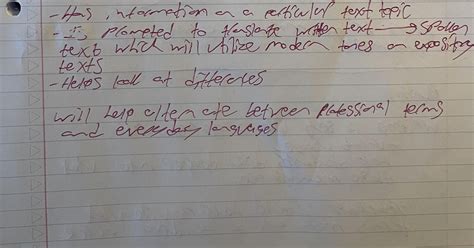 -Has information on a particular text topic
-Is prompted to translate written text → spoken
text which will utilize modern tones on expository
texts
-Helps look at differences
will help alternate between professional terms
and everyday languages